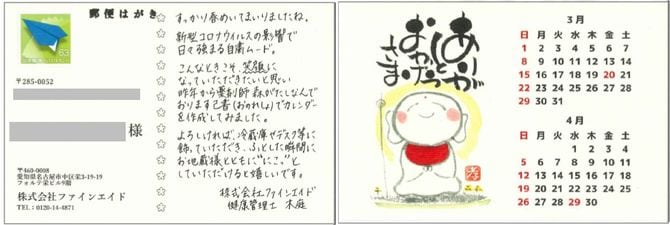 郵便はがき
63
〒285-0052
様
〒460-0008
愛知県名古屋市中区栄3-19-19
フォルテ栄ビル9階
株式会社ファインエイド
TEL: 0120-14-4871
すっかり春めいてまいりましたね。
新型コロナウイルスの影響で
日々強まる自粛ムード。
こんなときこそ、笑顔に
なっていただきたいと思い
昨年から薬剤師 森がたしなんで
おります己書(おのれしょ)でカレンダー
を作成してみました。
よろしければ、冷蔵庫やデスク等に
飾っていただき、ふとした瞬間に
お地蔵様とともに"にこっ"と
していただけると嬉しいです。
株式会社ファインエイド
健康管理士 木庭
ありが
とう
おかげ
さま
3月
日 月 火 水 木 金 土
1 2 3 4 5 6 7
8 9 10 11 12 13 14
15 16 17 18 19 20 21
22 23 24 25 26 27 28
29 30 31
4月
日 月 火 水 木 金 土
1 2 3 4
5 6 7 8 9 10 11
12 13 14 15 16 17 18
19 20 21 22 23 24 25
26 27 28 29 30